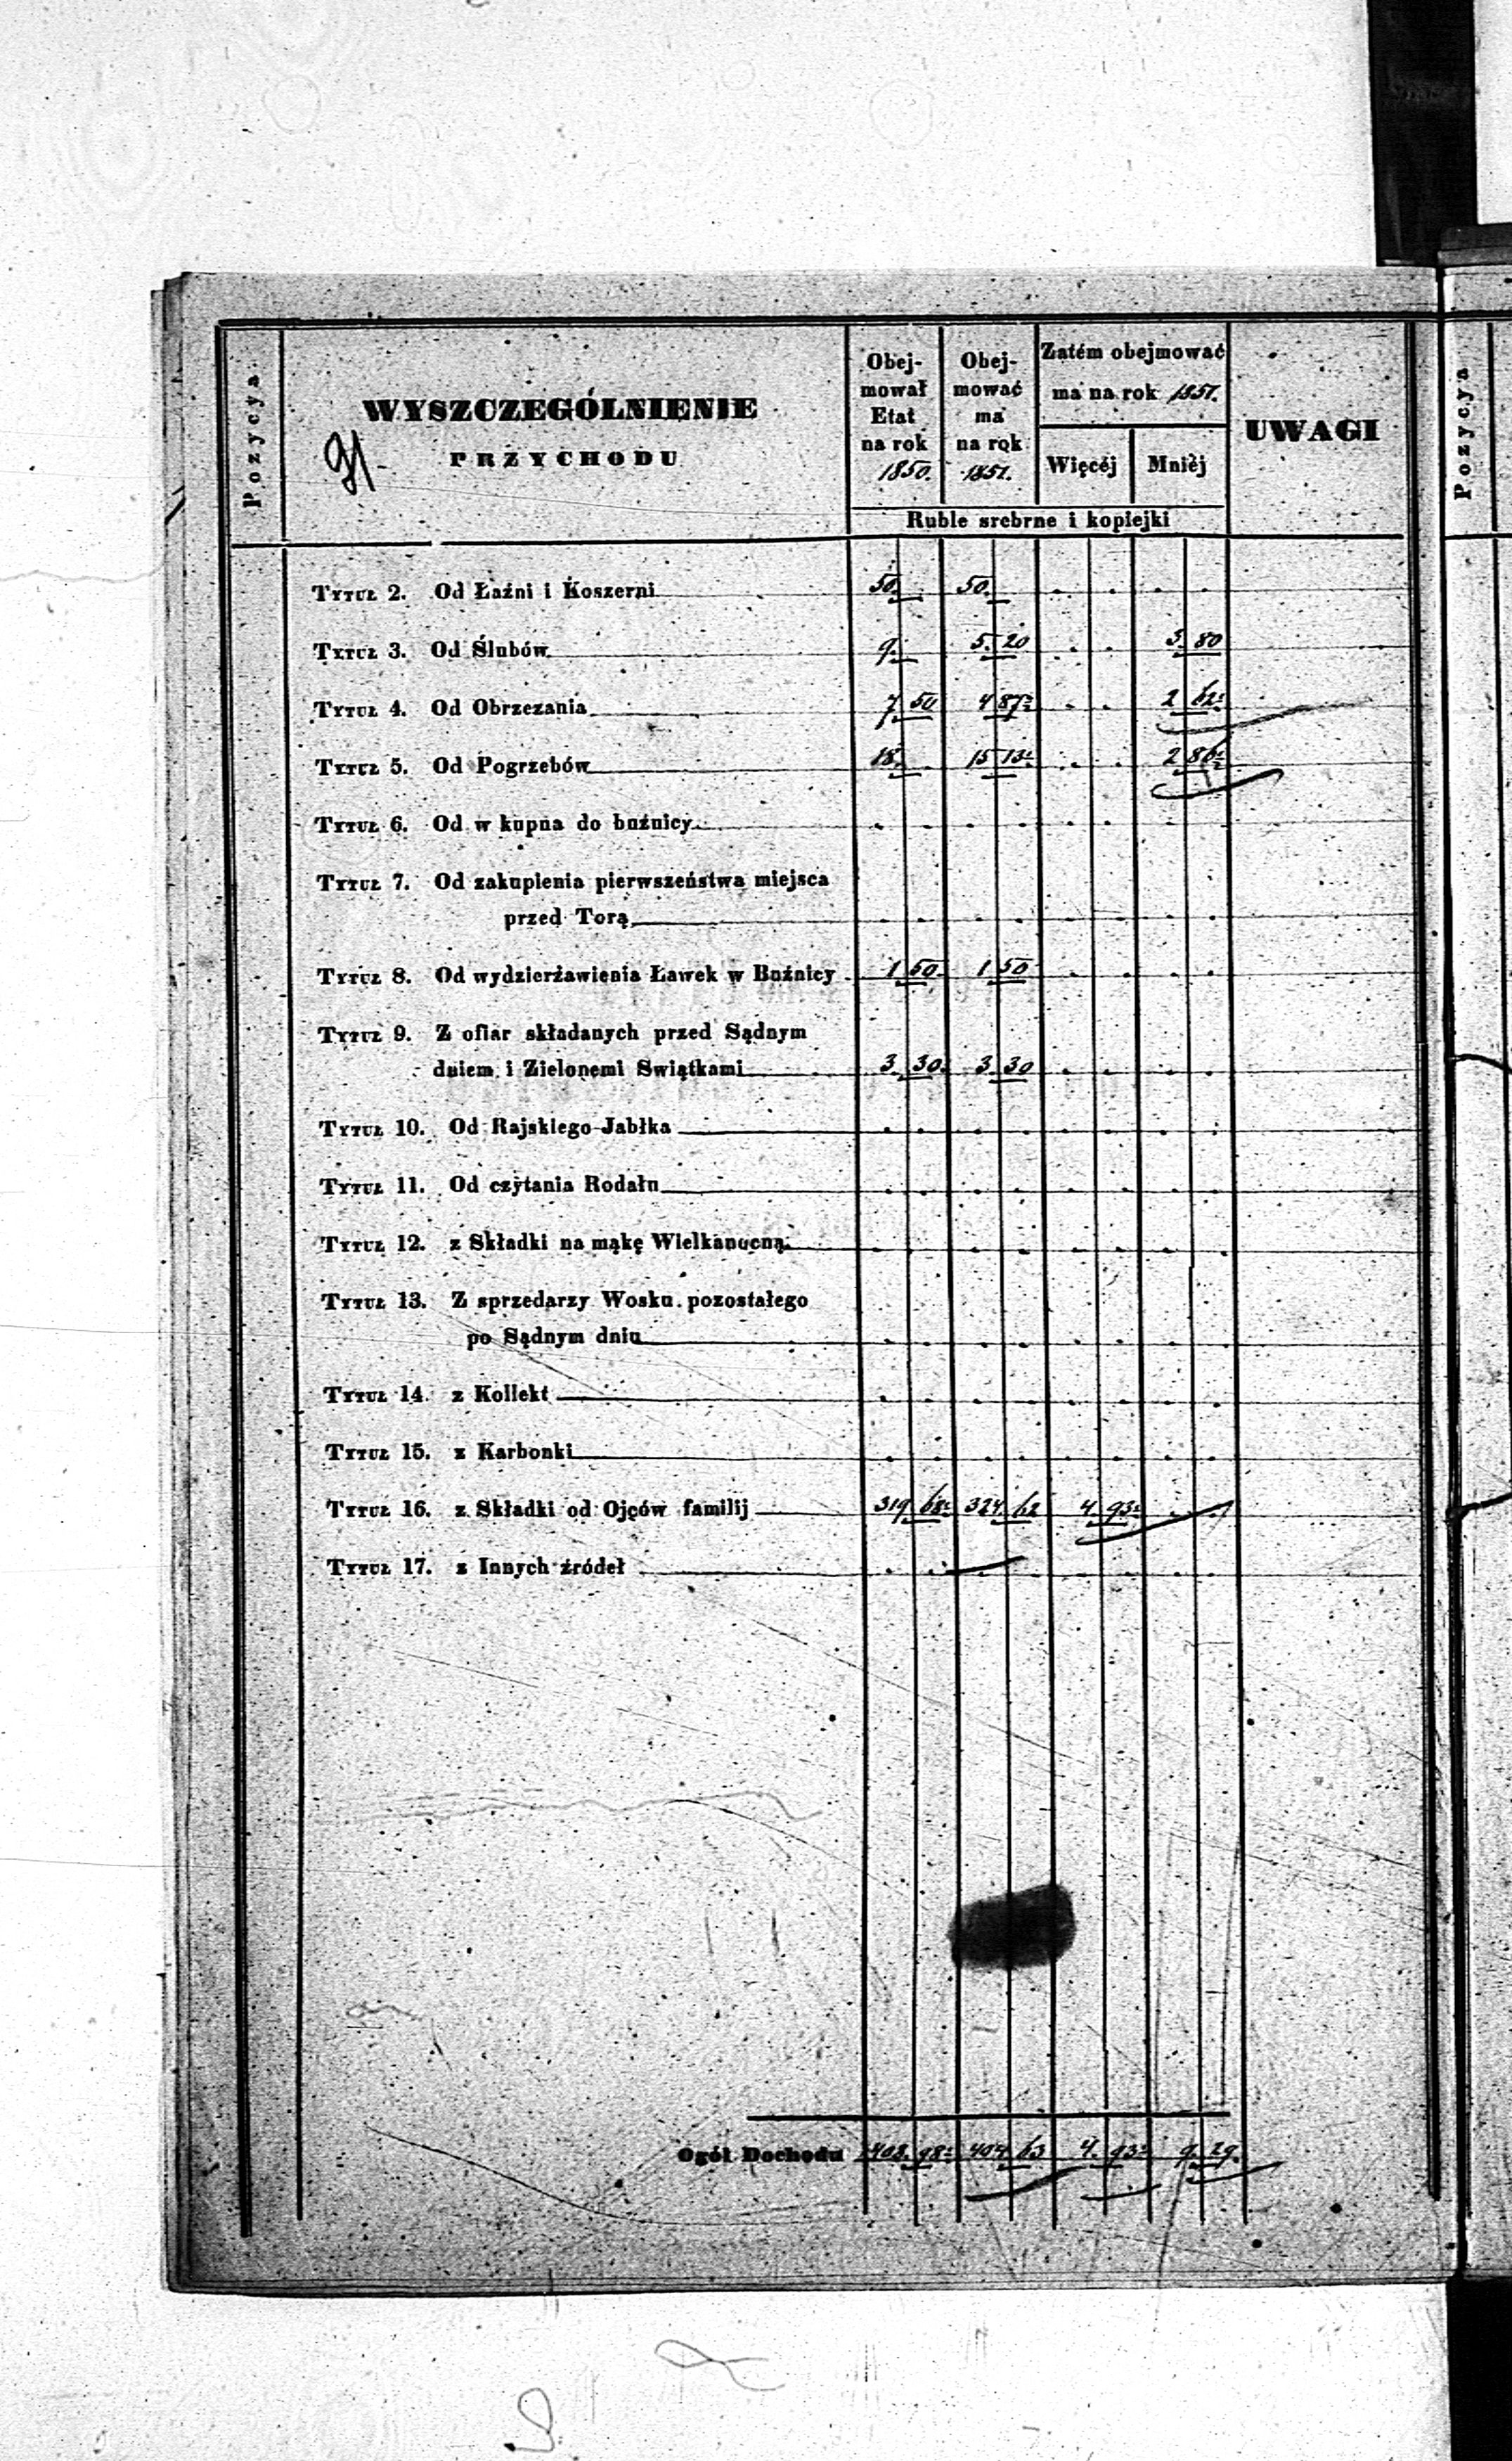 Pozycya
WYSZCZEGÓLNIENIE
PRZYCHODU
Obej-
mował
Etat
na rok
1850.
Obej-
mować
ma
na rok
1851.
Zatém obejmować
ma na rok 1851.
Więcéj
Mniéj
Ruble srebrne i kopiejki
UWAGI
Pozycya
Tytuł 2. Od Łaźni i Koszerni 50. 50.
Tytuł 3. Od Ślubów 9. 5. 20 3. 80
Tytuł 4. Od Obrzezania 7 50 4 87½ 2 62½
Tytuł 5. Od Pogrzebów 18. 15 13½ 2 86½
Tytuł 6. Od w kupna do buźnicy
Tytuł 7. Od zakupienia pierwszeństwa miejsca
przed Torą
Tytuł 8. Od wydzierżawienia Ławek w Buźnicy 1 50. 1 50
Tytuł 9. Z ofiar składanych przed Sądnym
dniem i Zielonemi Swiątkami 3. 30. 3. 30
Tytuł 10. Od Rajskiego Jabłka
Tytuł 11. Od czytania Rodału
Tytuł 12. z Składki na mąkę Wielkanocną
Tytuł 13. Z sprzedarzy Wosku pozostałego
po Sądnym dniu
Tytuł 14. z Kollekt
Tytuł 15. z Karbonki
Tytuł 16. z Składki od Ojców familij 319 68½ 324 62 4. 93½
Tytuł 17. z Innych źródeł
Ogół Dochodu 408. 98½ 404 63 4. 93½ 9. 29.